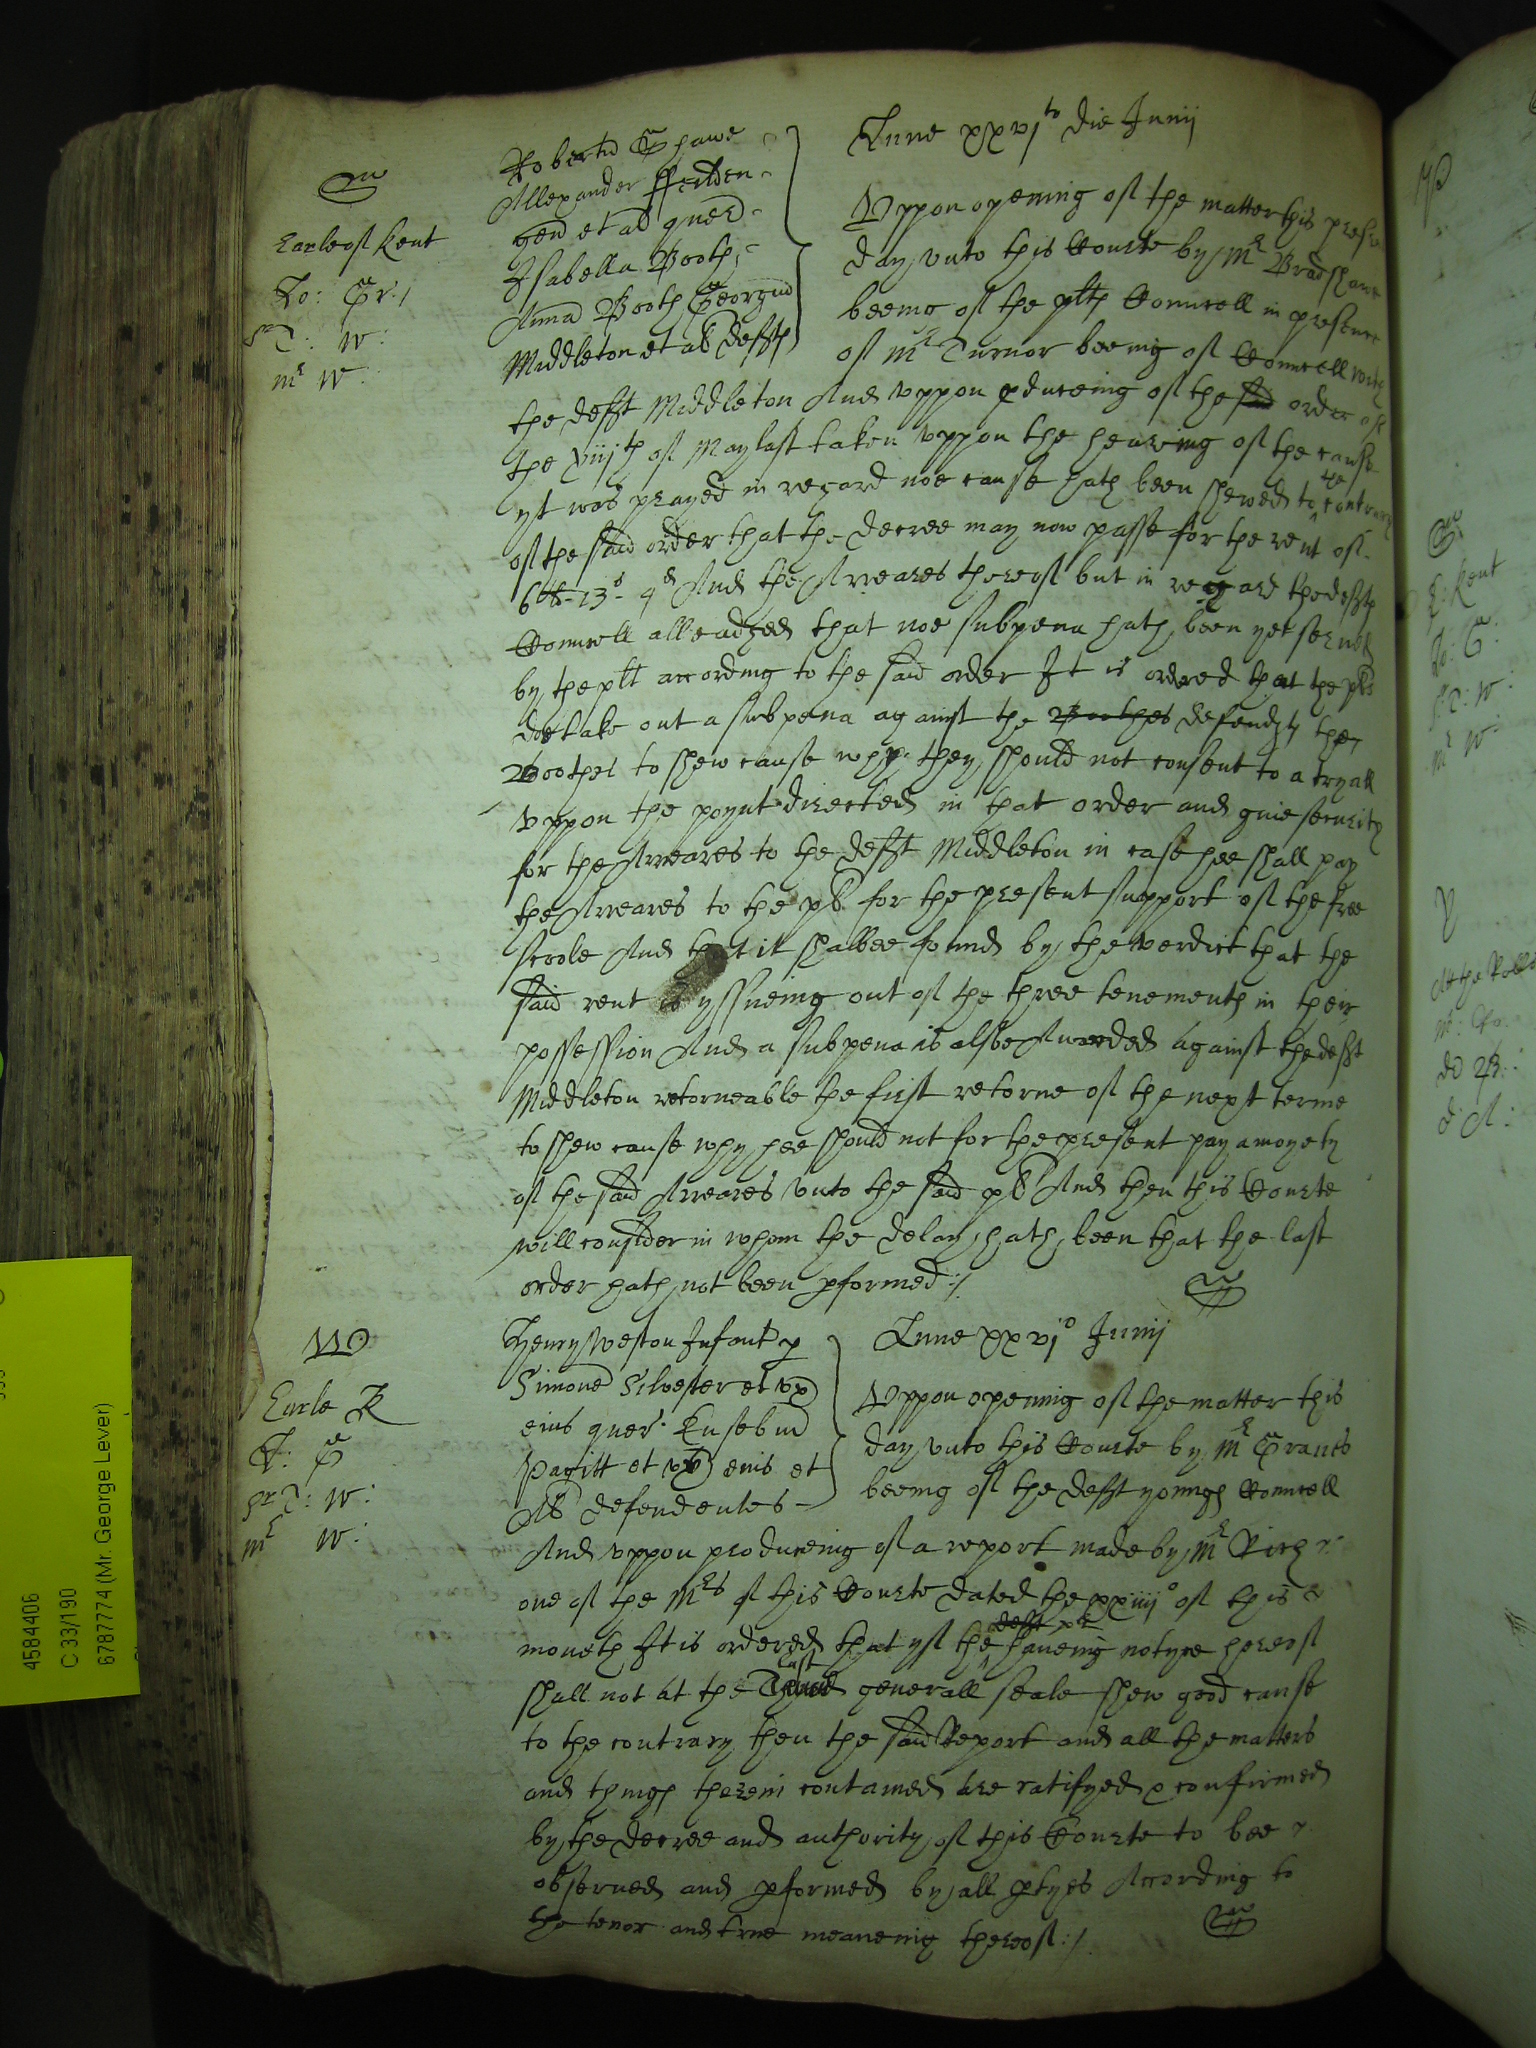 Lune xxvj to die Junij
Earle of Kent
Lo: Gr:
Sr T: W:
mr W:
Robertus Shawe
Allexander ffeilden
gen et al quer
Isabella Booth
Anna Booth Georgius
Middleton et al defts
Uppon opening of the matter this presente
day unto this Courte by Mr Bradshawe
beeing of the plts Councell in presence
of Mr Turnor beeing of Councell with
the defft Middleton And uppon pduceing of the said order of
the xiijth of May last taken uppon the hearing of the cause
yt was prayed in regard noe cause hath been shewed to the contrary
of the said order that the decree may now passe for the rent of
6li-13s-4d And the Arreares thereof but in regard the deffts
Councell alleadged that noe subpena hath been yet served
by the plt according to the said order It is ordered that the pls
doe take out a subpena against the Boothes defendts the
Boothes to shew cause why they should not consent to a tryall
uppon the poynt directed in that order and give security
for the Arreares to the defft Middleton in case hee shall pay
the Arreares to the pl for the present support of the free
scoole And that it shalbee found by the verdict that the
said rent is yssueing out of the three tenements in their
possession And a subpena is alsoe Awarded against the defft
Middleton retorneable the first retorne of the next terme
to shew cause why hee should not for the present pay a moyety
of the said Arreares unto the said pl And then this Courte
will consider in whom the delay hath been that the last
order hath not been pformed:/
Earle K
L: G
Sr T: W:
mr W:
Henry Weston Infant p
Simone Silvester et ux
eius quer Eusebius
Pagitt et ux eius et
Al defendentes
Lune xxvjo Junij
Uppon opening of the matter this
day unto this Courte by Mr Graves
beeing of the defft youngs Councell
And uppon produceing of a report made by Mr Rich
one of the Mrs of this Courte dated the xxiiijo of this
moneth It is ordered that yf the defft haveing notyce hereof
shall not at the last generall seale shew good cause
to the contrary then the said Report and all the matters
and things therein contained are ratifyed & confirmed
by the decree and authority of this Courte to bee
observed and pformed by all ptyes According to
the tenor and true meaneing thereof:/
4584406
C 33/190
6787774 (Mr. George Lever)
E: Kent
Lo: G:
Sr T: W:
mr W: